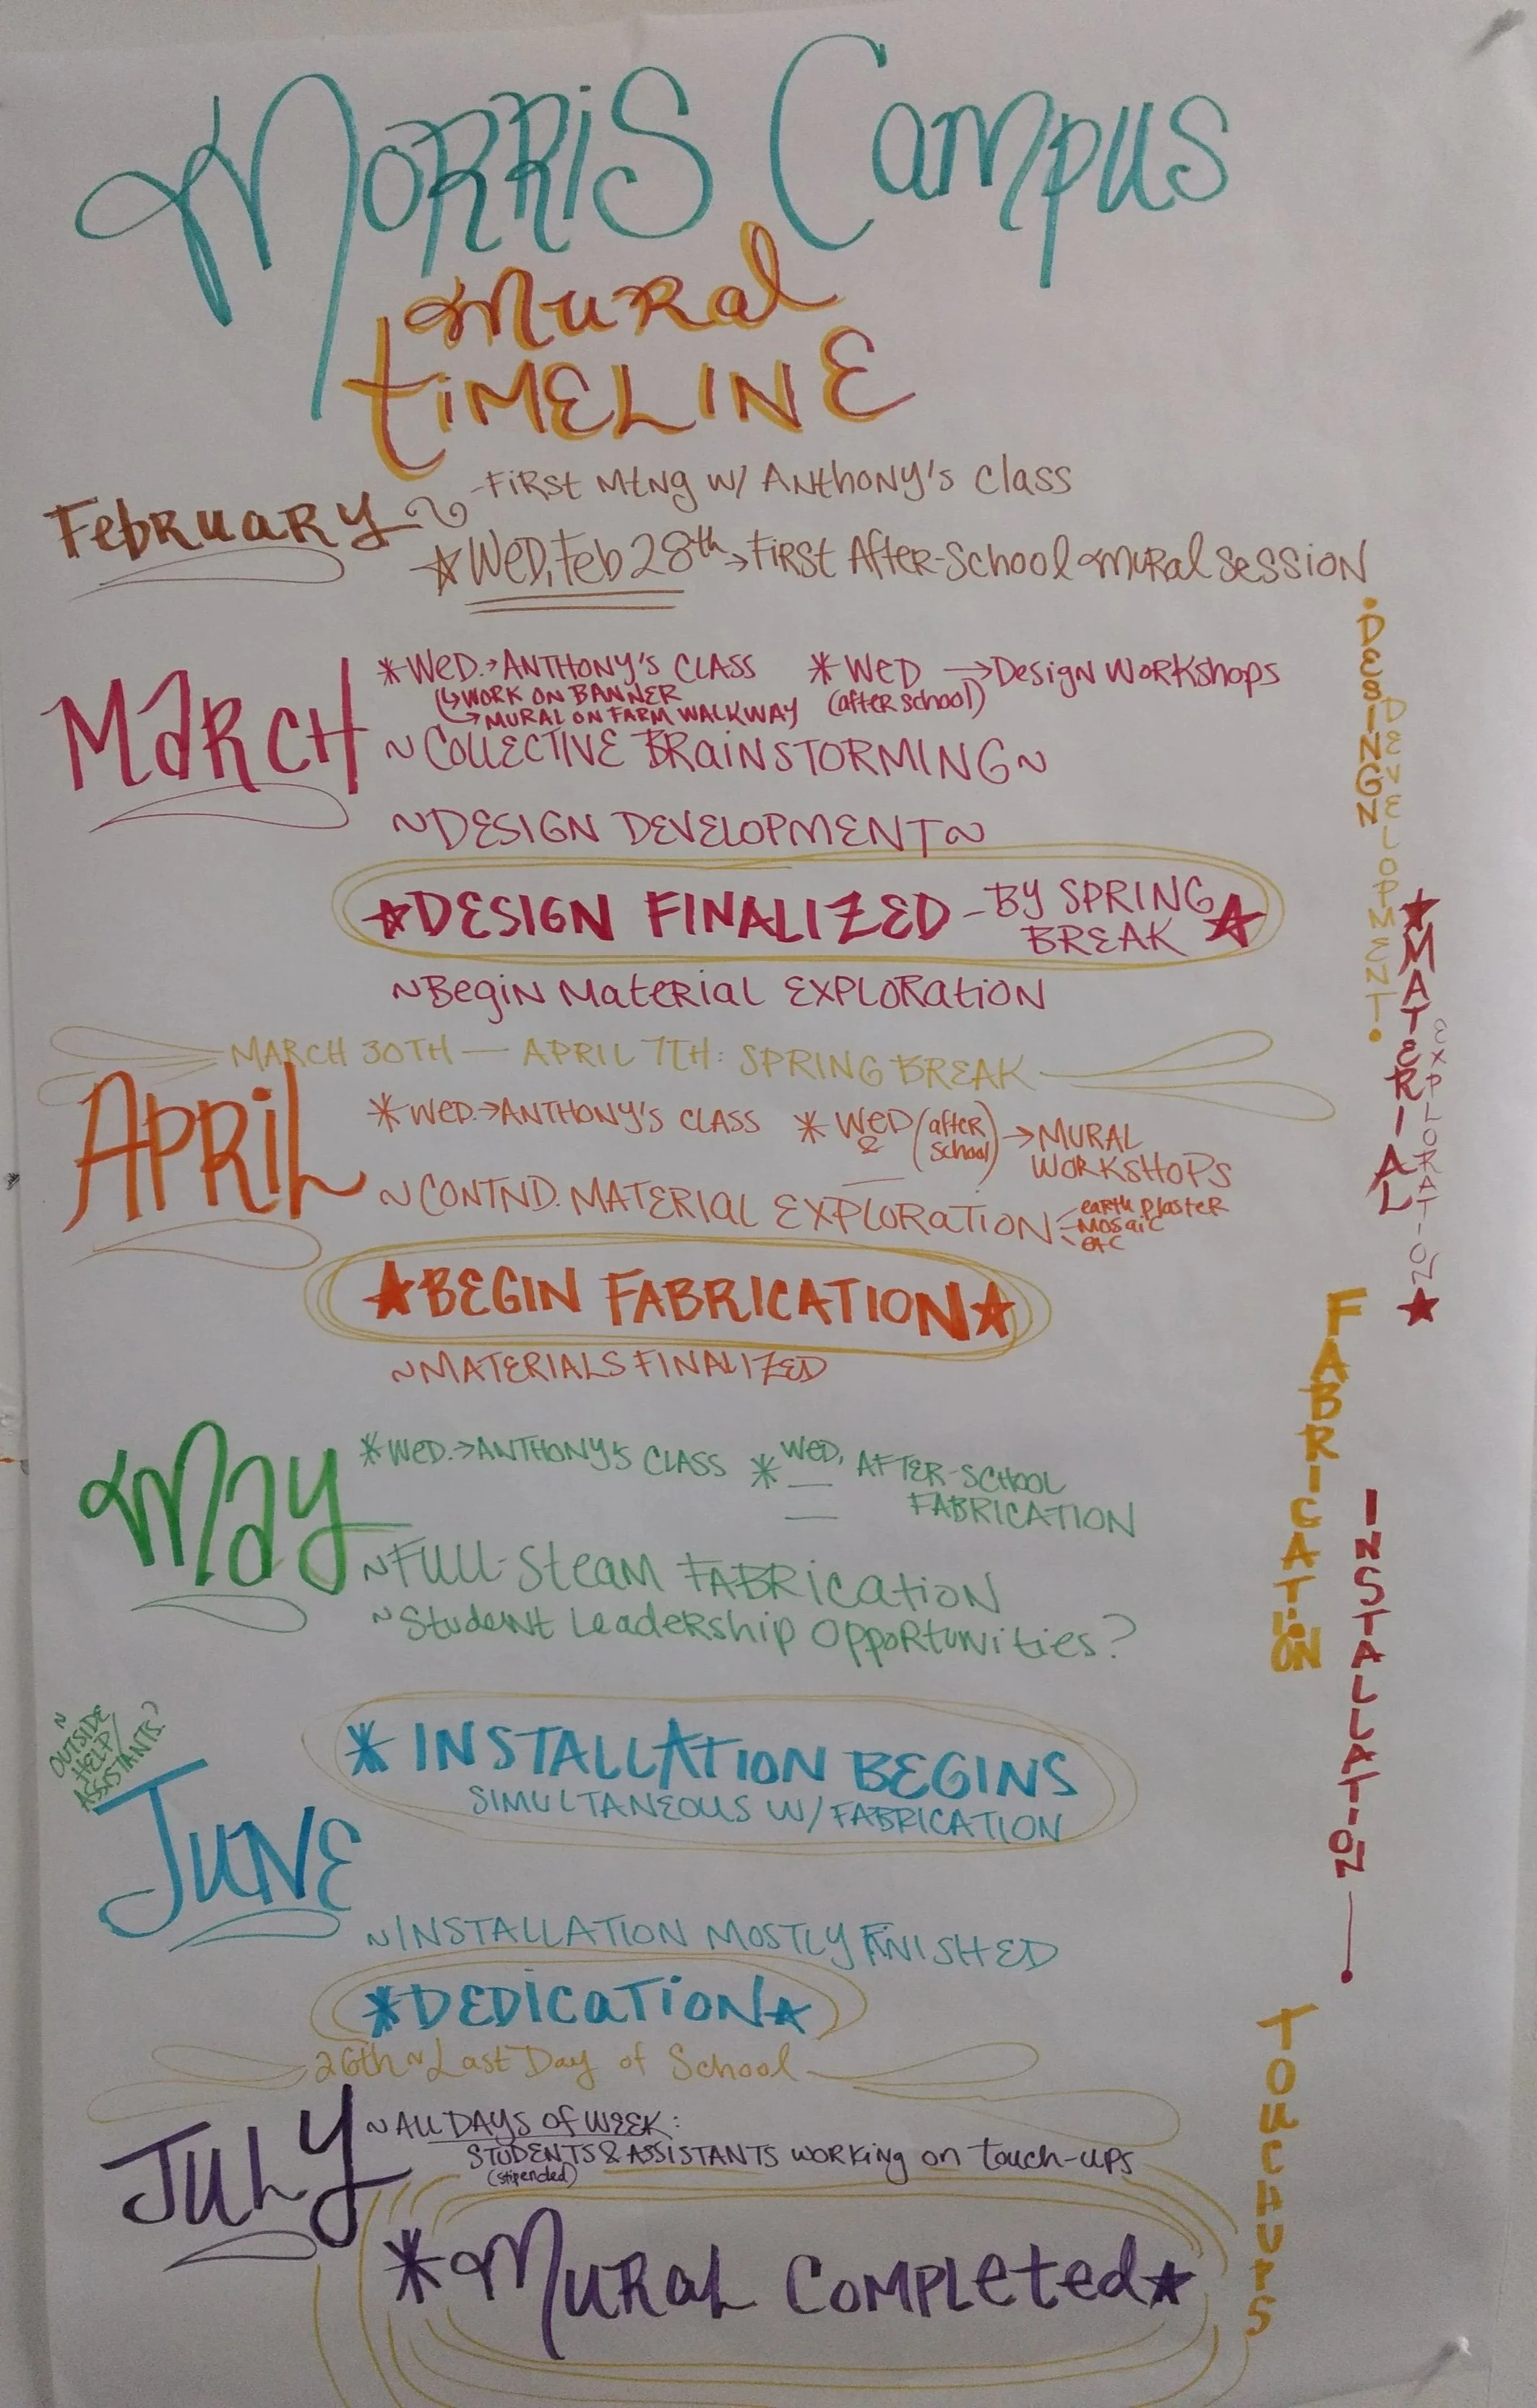 Morris Campus
Mural
TIMELINE
February
-First Mtng w/ Anthony's class
☆ Wed, Feb 28th → First After-School Mural Session
March
* Wed. → ANTHONY'S CLASS
↳ WORK ON BANNER
→ MURAL ON FARM WALKWAY
* Wed → Design Workshops
(after school)
~ COLLECTIVE BRAINSTORMING ~
~ DESIGN DEVELOPMENT ~
☆ DESIGN FINALIZED - BY SPRING
BREAK ☆
~ Begin Material EXPLORATION
MARCH 30TH — APRIL 7TH: SPRING BREAK
APRIL
* WED. → ANTHONY'S CLASS
* WED (after
& school) → MURAL
WORKSHOPS
~ CONTND. MATERIAL EXPLORATION
earth plaster
mosaic
etc
★ BEGIN FABRICATION ★
~ MATERIALS FINALIZED
May
* WED. → ANTHONY'S CLASS
* WED, AFTER-SCHOOL
FABRICATION
~ FULL-Steam FABRICATION
~ Student Leadership Opportunities?
~
OUTSIDE
HELP/
ASSISTANTS?
JUNE
* INSTALLATION BEGINS
SIMULTANEOUS W/ FABRICATION
~ INSTALLATION MOSTLY FINISHED
* DEDICATION ☆
26th ~ Last Day of School
JULY
~ ALL DAYS OF WEEK:
STUDENTS & ASSISTANTS WORKING on touch-ups
(stipended)
* MURAL COMPLETED ★
• DESIGN
DEVELOPMENT •
★ MATERIAL
EXPLORATION ★
FABRICATION
INSTALLATION
TOUCHUPS